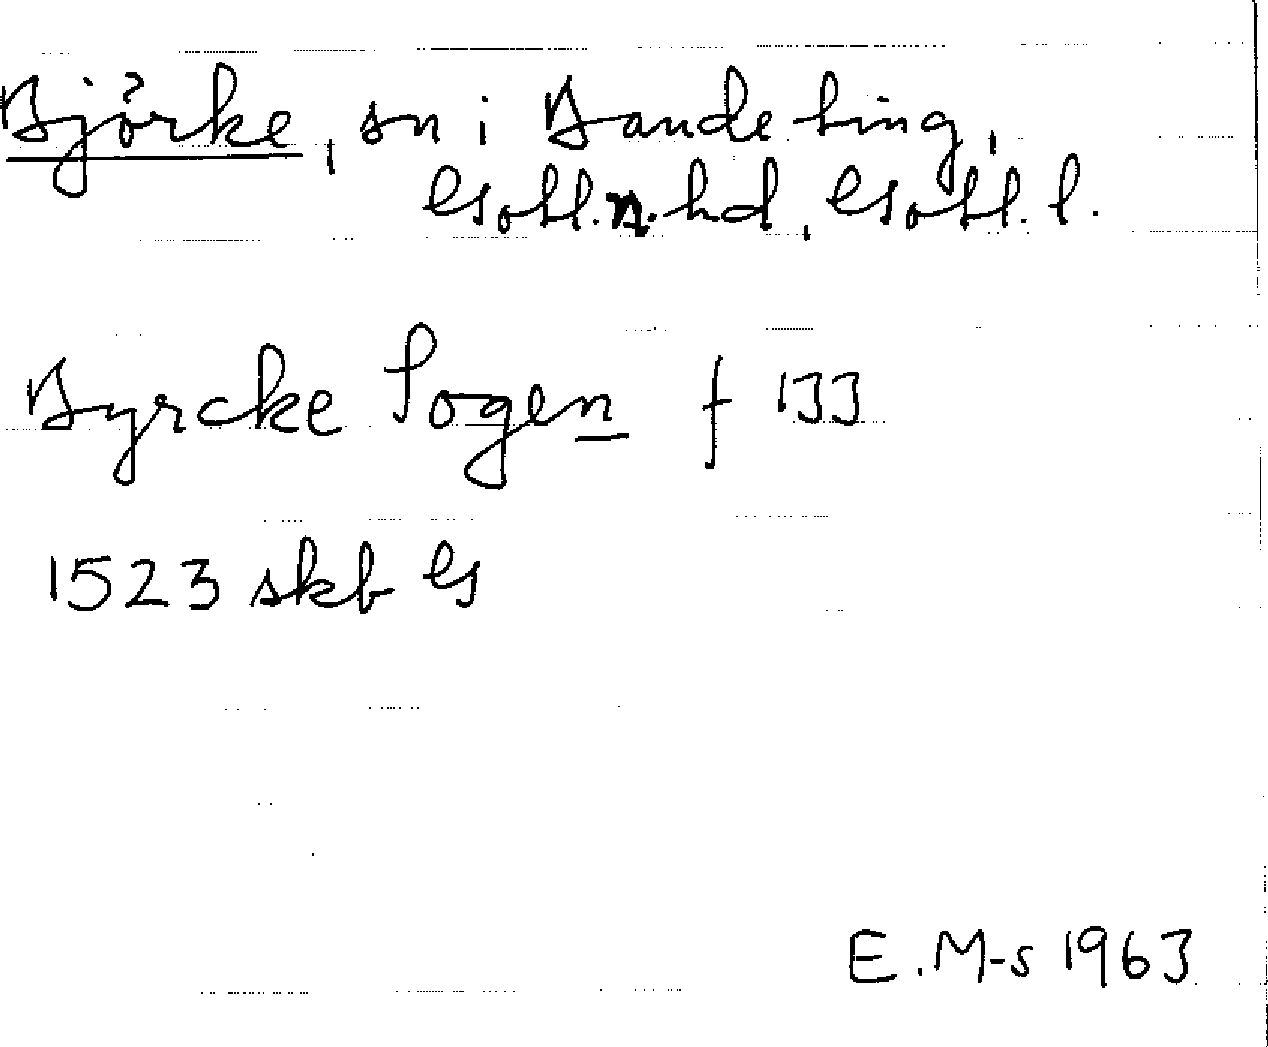 Björke, sn i Bande ting,
Gotl. n. hd, Gotl. l.
Byrcke Sogen f 133
1523 skb G
E. M-s 1963